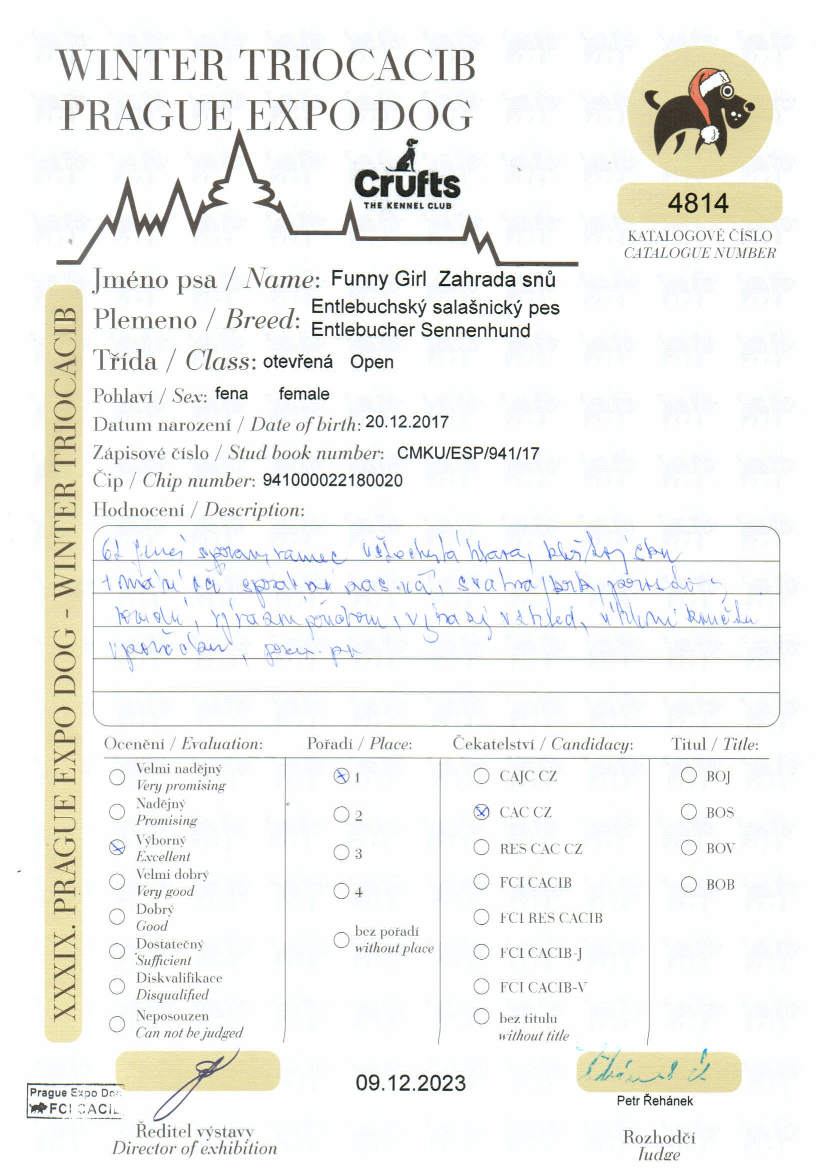 WINTER TRIOCACIB
PRAGUE EXPO DOG
Crufts
THE KENNEL CLUB
4814
KATALOGOVÉ ČÍSLO
CATALOGUE NUMBER
Jméno psa / Name: Funny Girl Zahrada snů
Plemeno / Breed: Entlebuchský salašnický pes
Entlebucher Sennenhund
Třída / Class: otevřená Open
Pohlaví / Sex: fena female
Datum narození / Date of birth: 20.12.2017
Zápisové číslo / Stud book number: CMKU/ESP/941/17
Čip / Chip number: 941000022180020
Hodnocení / Description:
rámec ušlechtilá hlava,
XXXIX. PRAGUE EXPO DOG - WINTER TRIOCACIB
Ocenění / Evaluation:
Velmi nadějný
Very promising
Nadějný
Promising
Výborný
Excellent
Velmi dobrý
Very good
Dobrý
Good
Dostatečný
Sufficient
Diskvalifikace
Disqualified
Neposouzen
Can not be judged
Pořadí / Place:
1
2
3
4
bez pořadí
without place
Čekatelství / Candidacy:
CAJC CZ
CAC CZ
RES CAC CZ
FCI CACIB
FCI RES CACIB
FCI CACIB-J
FCI CACIB-V
bez titulu
without title
Titul / Title:
BOJ
BOS
BOV
BOB
Prague Expo Dog
FCI CACIB
Ředitel výstavy
Director of exhibition
09.12.2023
Petr Řehánek
Rozhodčí
Judge